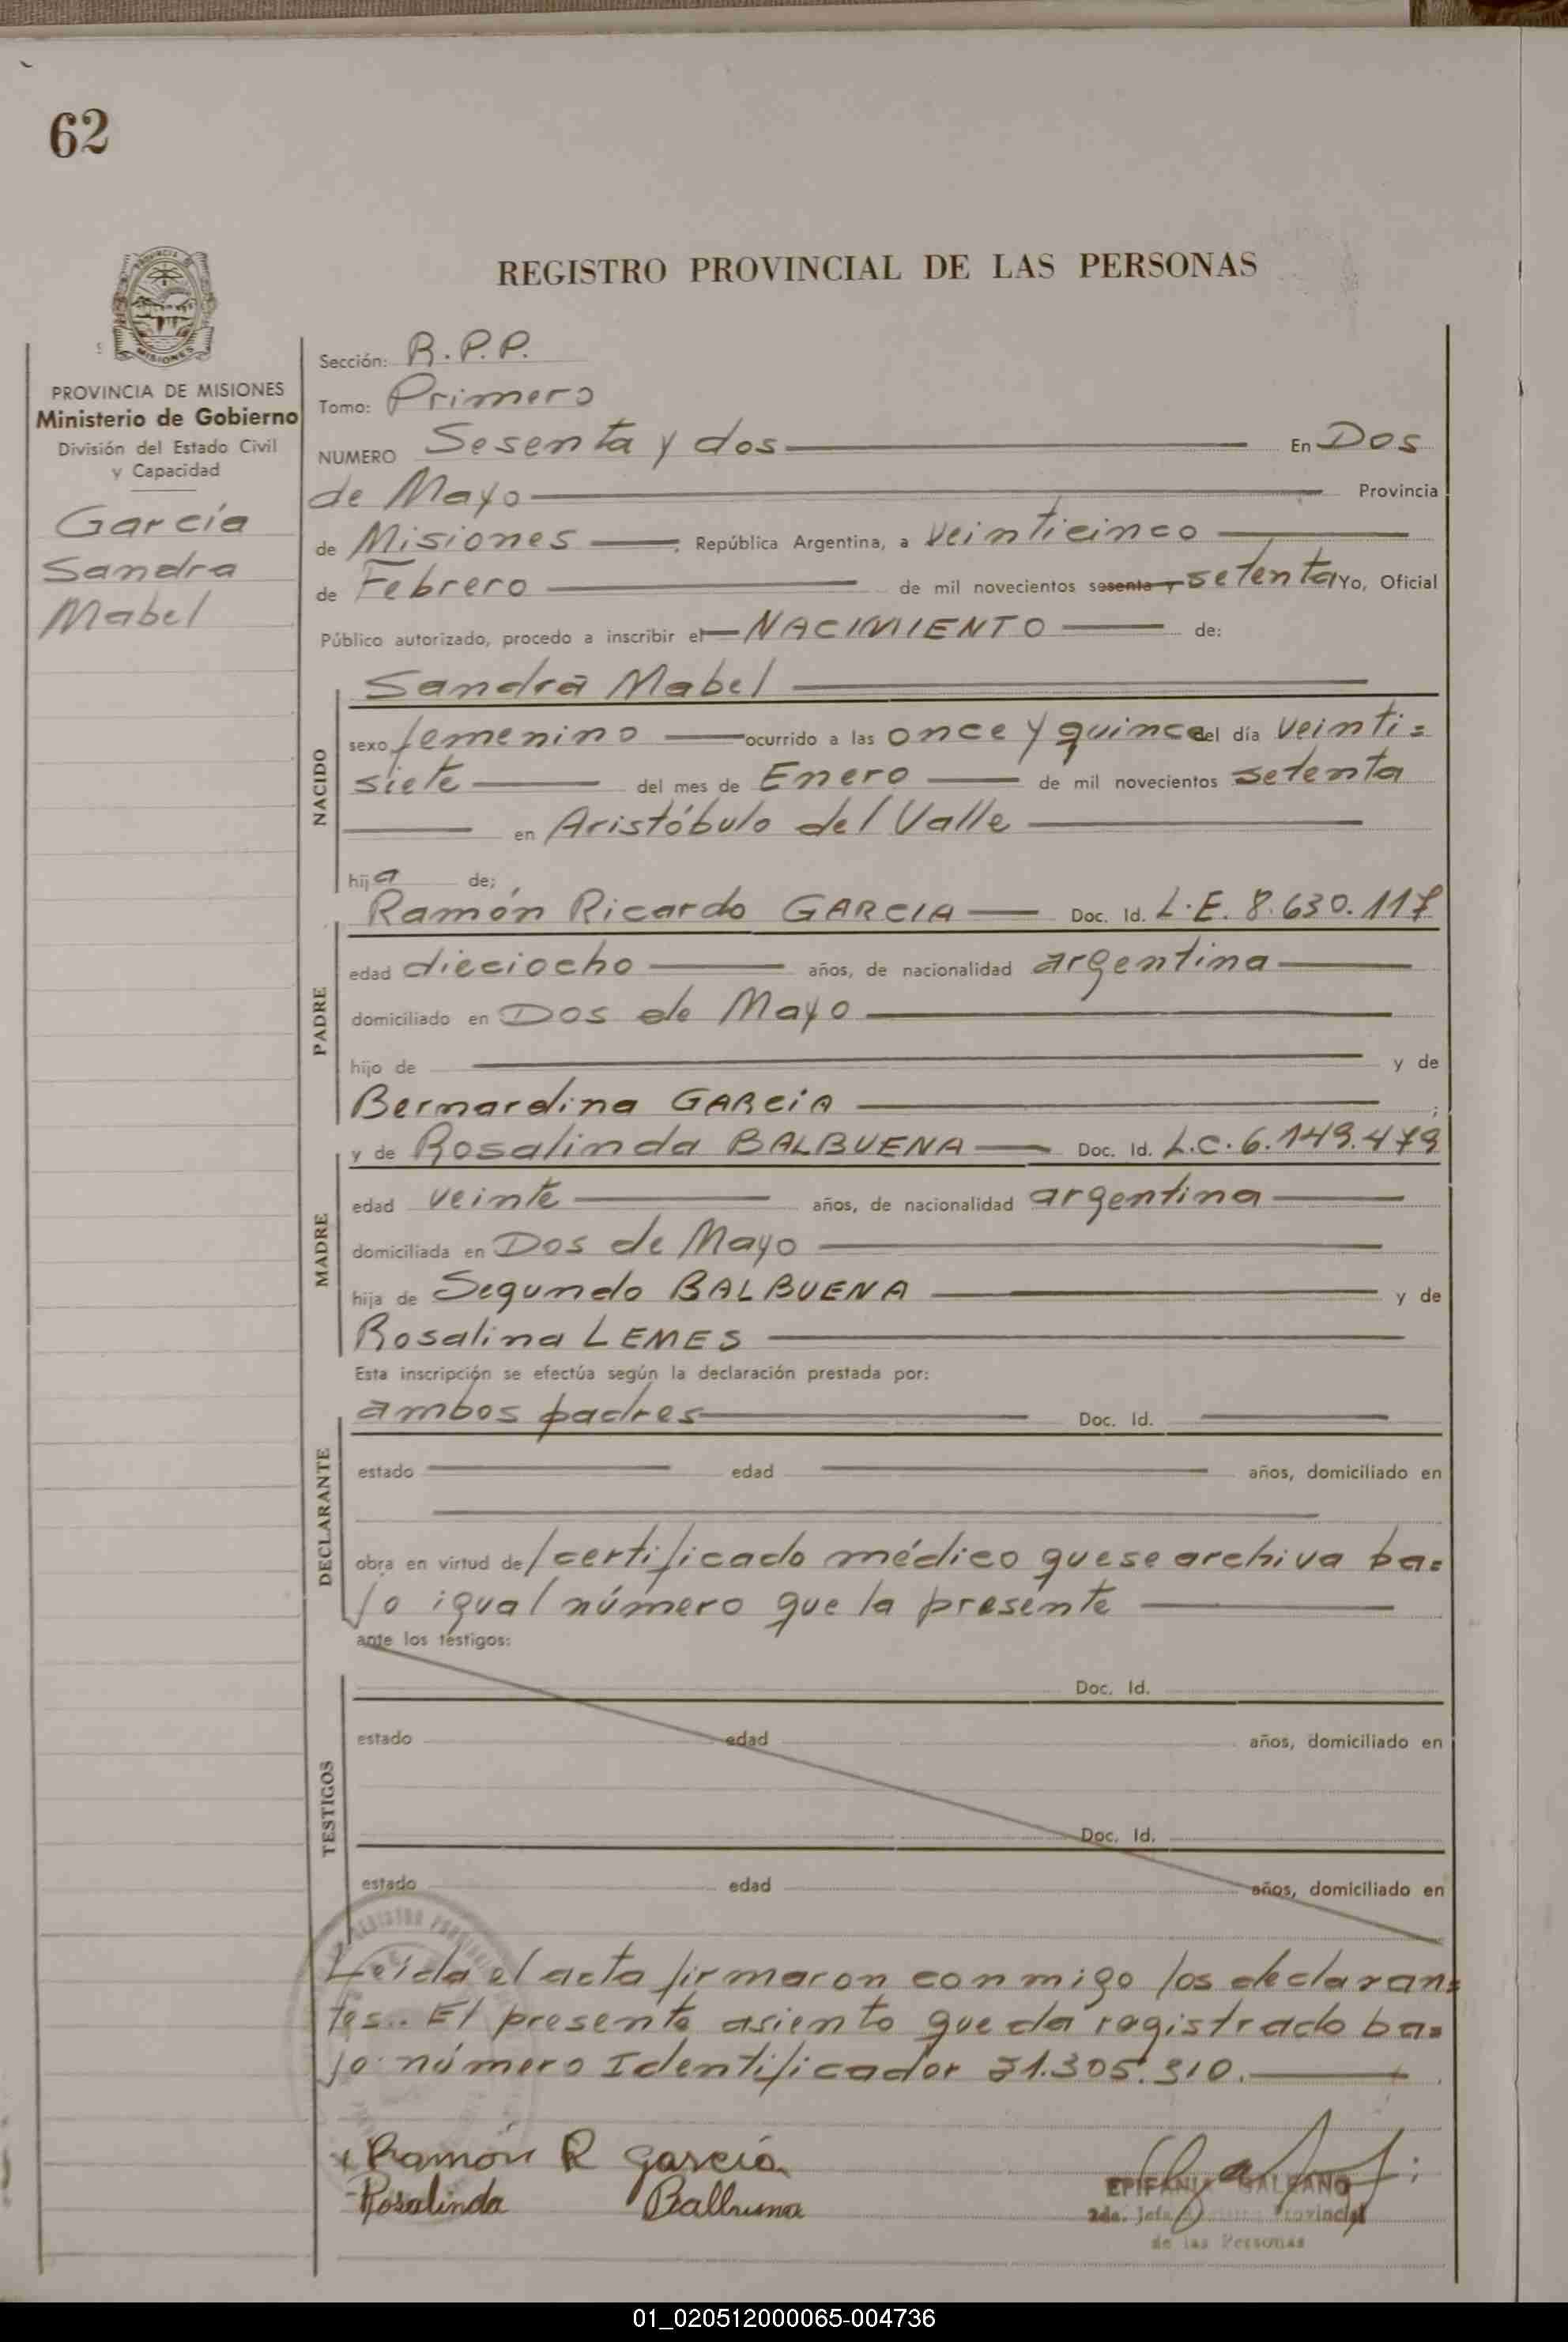 62
REGISTRO PROVINCIAL DE LAS PERSONAS
PROVINCIA DE MISIONES
Ministerio de Gobierno
División del Estado Civil
y Capacidad
García
Sandra
Mabel
Sección: R.P.P.
Tomo: Primero
NUMERO Sesenta y dos En Dos
de Mayo Provincia
de Misiones , República Argentina, a veinticinco
de Febrero de mil novecientos sesenta y setenta Yo, Oficial
Público autorizado, procedo a inscribir el NACIMIENTO de:
NACIDO
Sandra Mabel
sexo femenino ocurrido a las once y quince del día veinti=
siete del mes de Enero de mil novecientos setenta
en Aristóbulo del Valle
hija de;
PADRE
Ramón Ricardo GARCIA Doc. Id. L.E. 8.630.117
edad dieciocho años, de nacionalidad argentina
domiciliado en Dos de Mayo
hijo de y de
Bernardina GARCIA ;
MADRE
y de Rosalinda BALBUENA Doc. Id. L.C. 6.149.479
edad veinte años, de nacionalidad argentina
domiciliada en Dos de Mayo
hija de Segundo BALBUENA y de
Rosalina LEMES
Esta inscripción se efectúa según la declaración prestada por:
DECLARANTE
ambos padres Doc. Id.
estado edad años, domiciliado en
obra en virtud de/certificado médico que se archiva ba=
jo igual número que la presente
ante los testigos:
TESTIGOS
Doc. Id.
estado edad años, domiciliado en
Doc. Id.
estado edad años, domiciliado en
Leída el acta firmaron conmigo los declaran=
tes.. El presente asiento queda registrado ba=
jo número Identificador 21.305.310.
Ramón R García
Rosalinda Balbuena
EPIFANIA GALEANO
2da. Jefa Registro Provincial
de las Personas
01_020512000065-004736